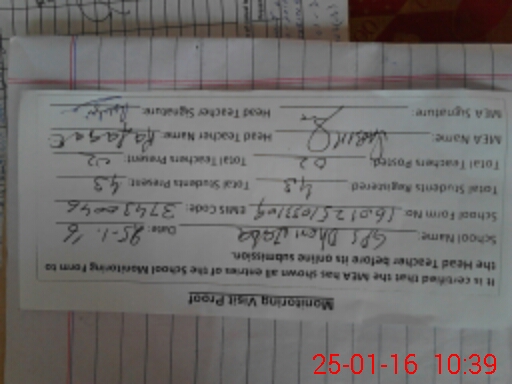 Monitoring Visit Proof
It is certified that the MEA has shown all entries of the School Monitoring Form to
the Head Teacher before its online submission.
School Name: GPS Dheri Date: 25-1-16
School Form No EMIS Code: 37430046
Total Students Registered 43 Total Students Present: 43
Total Teachers Posted 02 Total Teachers Present 02
MEA Name: Head Teacher Name:
MEA Signature: Head Teacher Signature:
25-01-16 10:39